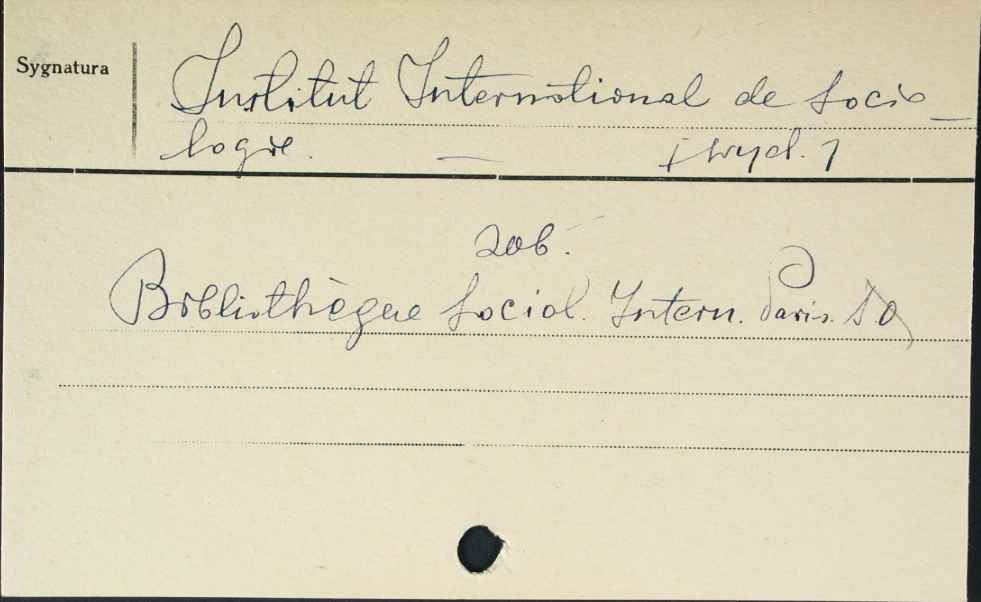 Sygnatura
Institut International de Socio_
logie. — [wyd.]
zob.
Bibliothèque Sociol. Intern. Paris.